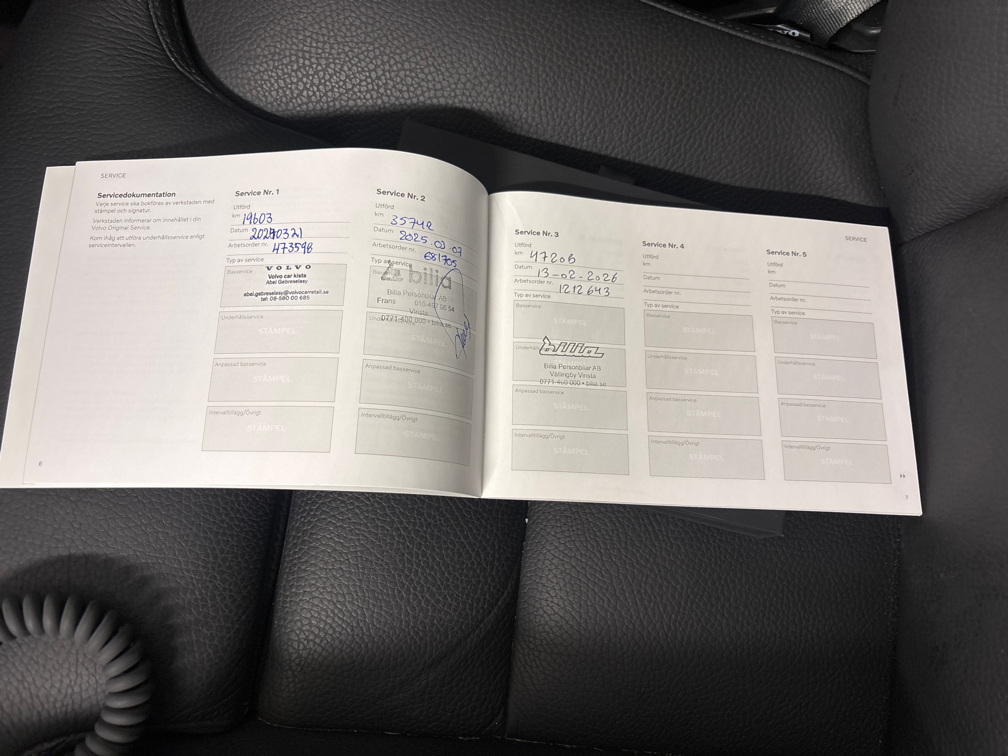 SERVICE
Servicedokumentation
Varje service ska bokföras av verkstaden med
stämpel och signatur.
Verkstaden informerar om innehållet i din
Volvo Original Service.
Kom ihåg att utföra underhållsservice enligt
serviceintervallen.
6
Service Nr. 1
Utförd
km 19603
Datum 20240321
Arbetsorder nr. 473598
Typ av service
Basservice
VOLVO
Volvo car kista
Abel Gebreselasy
abel.gebreselasy@volvocarretail.se
tel: 08-580 00 685
Underhållsservice
STÄMPEL
Anpassad basservice
STÄMPEL
Intervalltillägg/Övrigt
STÄMPEL
Service Nr. 2
Utförd
km 35742
Datum 2025-03-07
Arbetsorder nr. 681705
Typ av service
bilia
Bilia Personbilar AB
Frans
Vinsta
0771-400 000 • bilia.se
STÄMPEL
Anpassad basservice
STÄMPEL
Intervalltillägg/Övrigt
STÄMPEL
Service Nr. 3
Utförd
km 47206
Datum 13-02-2026
Arbetsorder nr. 1212643
Typ av service
Basservice
STÄMPEL
bilia
Bilia Personbilar AB
Vällingby Vinsta
0771-400 000 • bilia.se
Anpassad basservice
STÄMPEL
Intervalltillägg/Övrigt
STÄMPEL
Service Nr. 4
Utförd
km
Datum
Arbetsorder nr.
Typ av service
Basservice
STÄMPEL
Underhållsservice
STÄMPEL
Anpassad basservice
STÄMPEL
Intervalltillägg/Övrigt
STÄMPEL
SERVICE
Service Nr. 5
Utförd
km
Datum
Arbetsorder nr.
Typ av service
Basservice
STÄMPEL
Underhållsservice
STÄMPEL
Anpassad basservice
STÄMPEL
Intervalltillägg/Övrigt
STÄMPEL
7